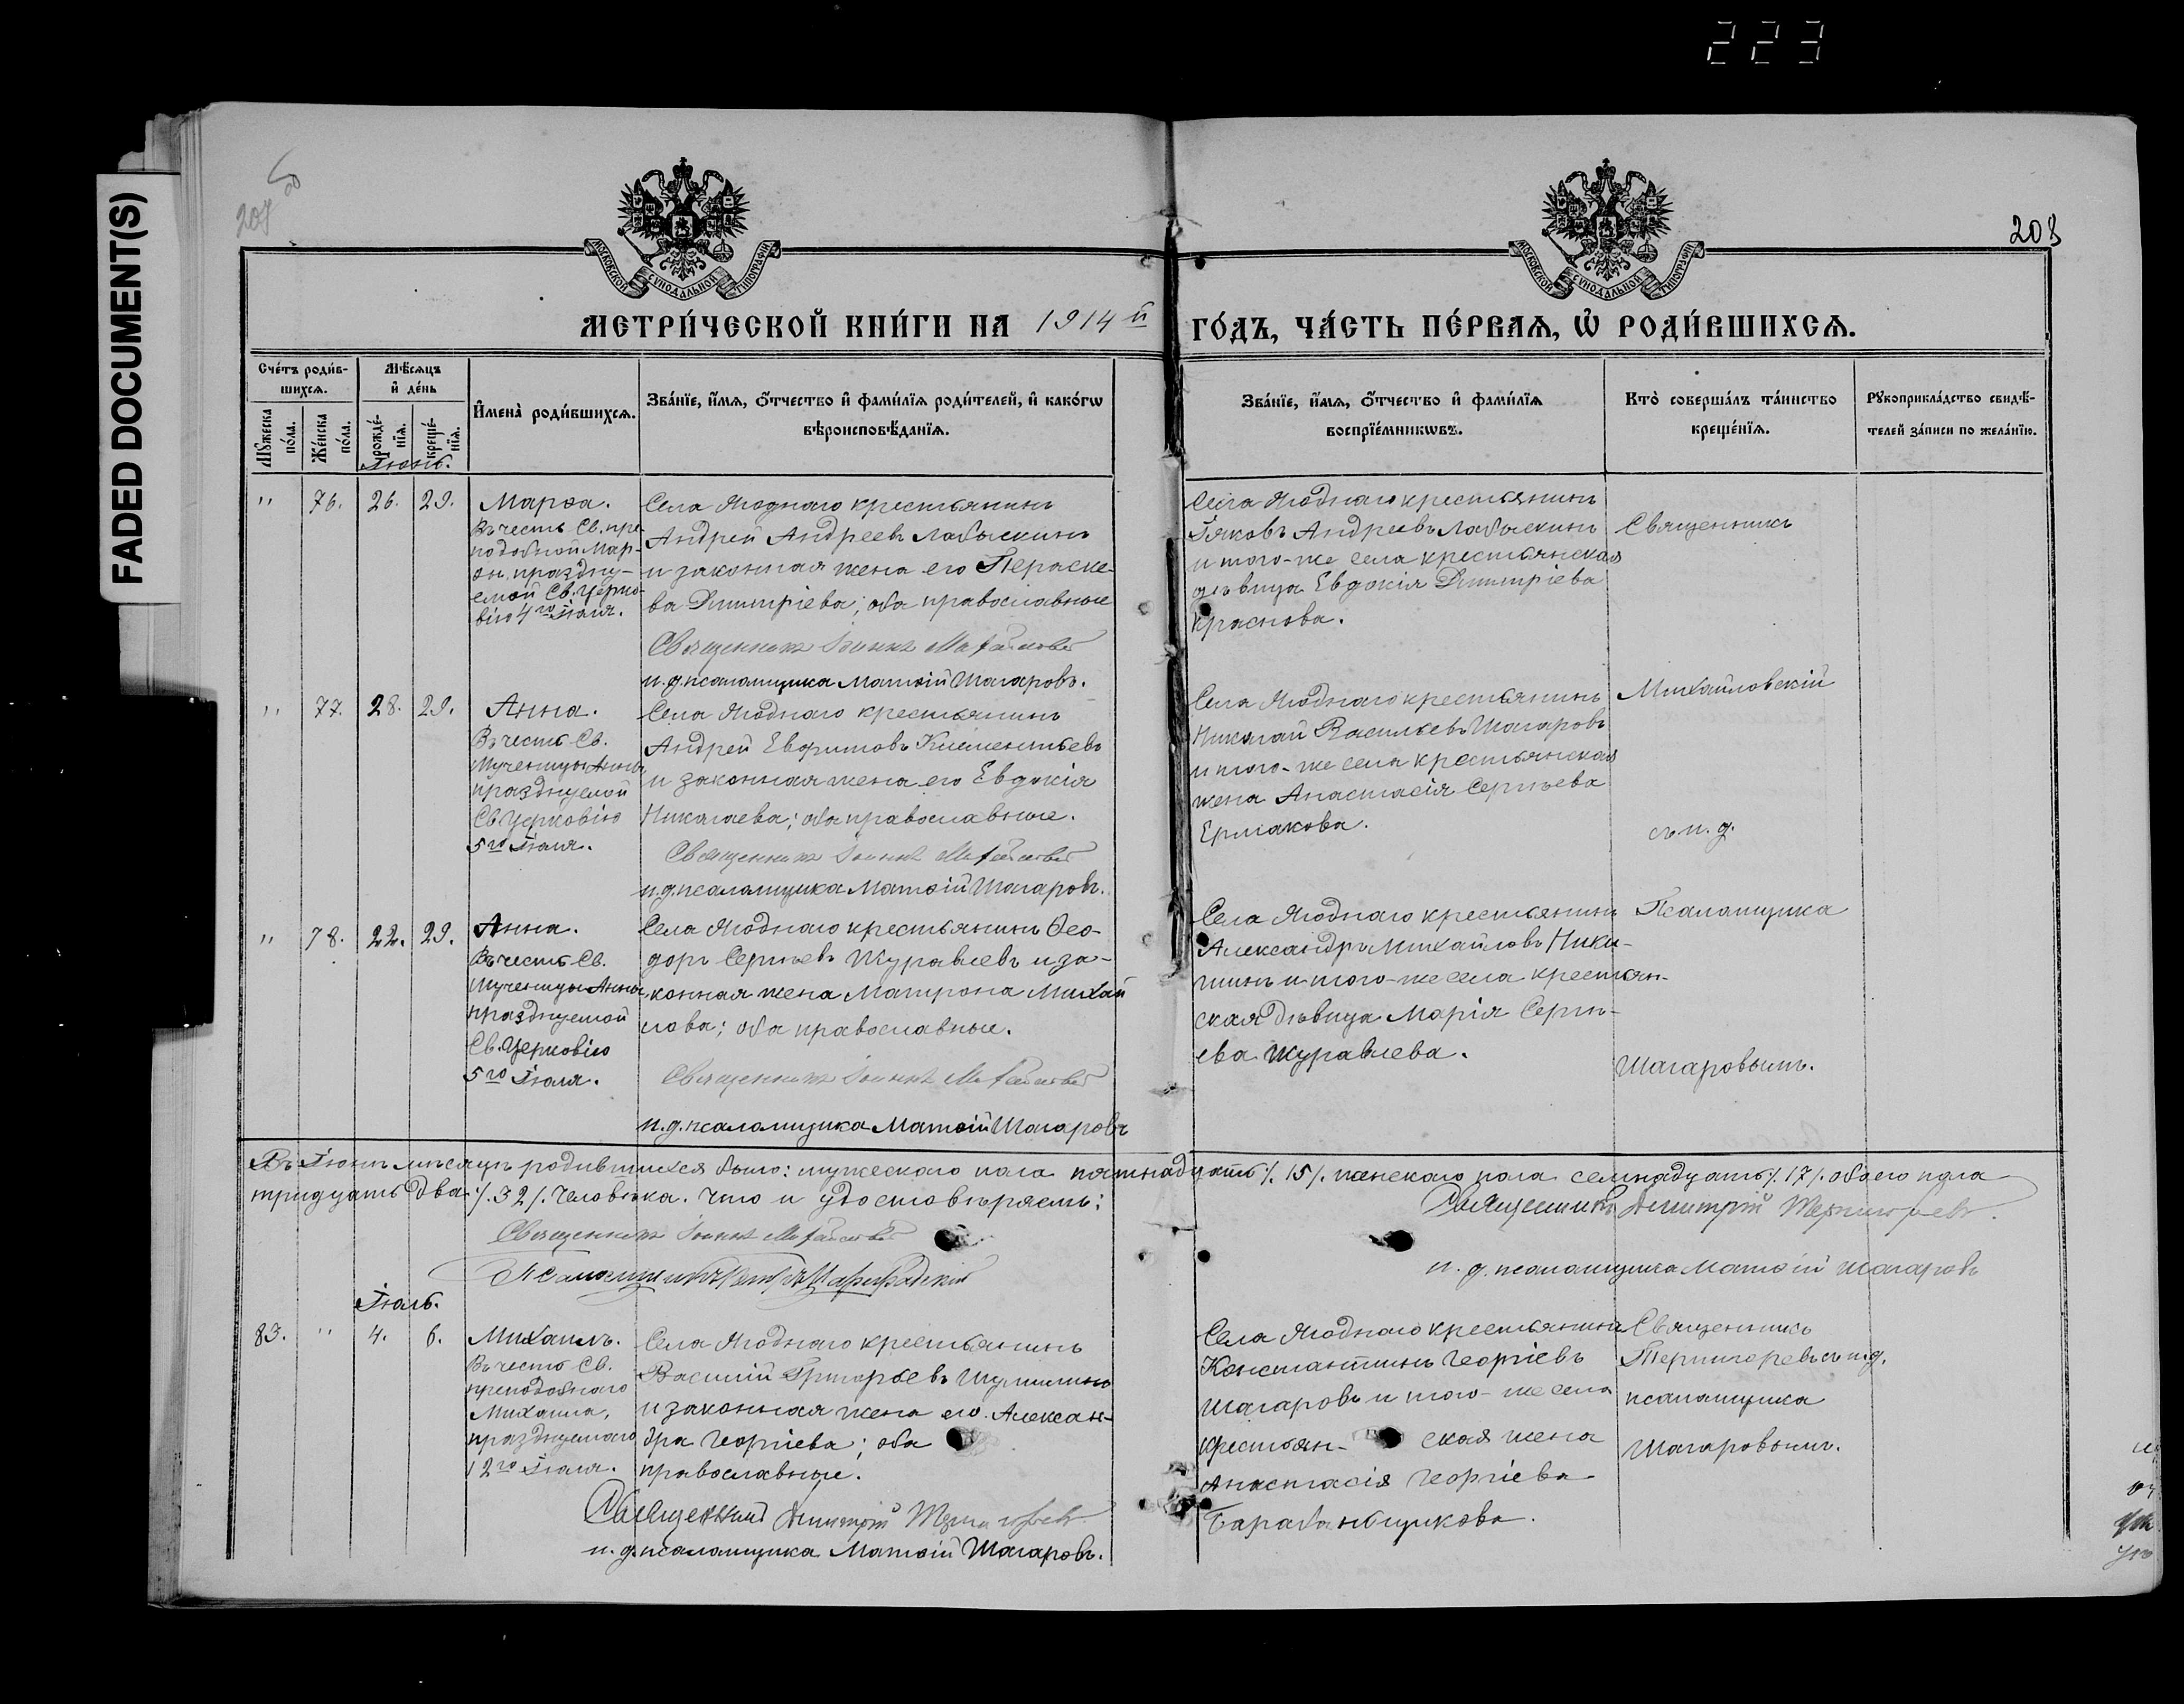 223
FADED DOCUMENT(S)
207
208
МОСКОВСКОЙ СѴНОДАЛЬНОЙ ТИПОГРАФІИ
МОСКОВСКОЙ СѴНОДАЛЬНОЙ ТИПОГРАФІИ
МЕТРИ́ЧЕСКОЙ КНИ́ГИ НА 1914 й ГО́ДЪ, ЧА́СТЬ ПЕ́РВАѦ, Ѡ҆ РОДИ́ВШИХСѦ.
Сче́тъ роди́в-
шихсѧ.
Мѣ́сѧцъ
и҆ де́нь
Мꙋ́жеска
по́ла.
Же́нска
по́ла.
рожде́-
нїѧ.
креще́-
нїѧ.
И҆мена̀ роди́вшихсѧ.
Зва́нїе, и҆́мѧ, ѻ҆́тчество и҆ фами́лїѧ роди́телей, и҆ како́гѡ
вѣроисповѣ́данїѧ.
Зва́нїе, и҆́мѧ, ѻ҆́тчество и҆ фами́лїѧ
воспрїе́мникѡвъ.
Кто̀ соверша́лъ та́инство
креще́нїѧ.
Рꙋкоприкла́дство свидѣ́-
телей за́писи по жела́нїю.
Іюнь.
" 76. 26. 29. Марѳа.
Въ честь Св. пре-
подобной Мар-
ѳы, праздну-
емой Св. Церко-
вію 4го Іюля.
Села Ягоднаго крестьянинъ
Андрей Андреевъ Лабыскинъ
и законная жена его Пераске-
ва Димитріева; оба православные
Священникъ Іоаннъ Михайловскій
и.д.псаломщика Матѳій Шагаровъ.
Села Ягоднаго крестьянинъ
Іяковъ Андреевъ Лабыскинъ
и того-же села крестьянская
дѣвица Евдокія Димитріева
Краснова.
Священникъ
" 77. 28. 29. Анна.
Въ честь Св.
Мученицы Анны,
празднуемой
Св. Церковію
5го Іюля.
Села Ягоднаго крестьянинъ
Андрей Евфимовъ Климентьевъ
и законная жена его Евдокія
Николаева; оба православные.
Священникъ Іоаннъ Михайловскій
и.д.псаломщика Матѳій Шагаровъ.
Села Ягоднаго крестьянинъ
Николай Васильевъ Шагаровъ
и того-же села крестьянская
жена Анастасія Сергѣева
Ермакова.
Михайловскій
съ и. д.
" 78. 22. 29. Анна.
Въ честь Св.
Мученицы Анны,
празднуемой
Св. Церковію
5го Іюля.
Села Ягоднаго крестьянинъ Ѳео-
доръ Сергѣевъ Журавлевъ и за-
конная жена Матрона Михай
лова; оба православные.
Священникъ Іоаннъ Михайловскій
и.д.псаломщика Матѳій Шагаровъ
Села Ягоднаго крестьянинъ
Александръ Михайловъ Ники-
шинъ и того-же села крестьян-
ская дѣвица Марія Сергѣ-
ева Журавлева.
Псаломщика
Шагаровымъ.
Въ Іюнѣ мѣсяцѣ родившихся было: мужескаго пола пятнадцать /. 15 /. женскаго пола семнадцать /. 17 /. обоего пола
тридцать два /. 32 /. человѣка. Что и удостовѣряемъ:
Священникъ Іоаннъ Михайловскій
Священникъ Димитрій Терпигоревъ.
Псаломщикъ
и. д. псаломщика Матѳій Шагаровъ
Іюль.
83. " 4. 6. Михаилъ.
Въ честь Св.
преподобнаго
Михаила,
празднуемаго
12го Іюля.
Села Ягоднаго крестьянинъ
Василій Григорьевъ
и законная жена его Алексан-
дра Георгіева; оба
православные.
Священникъ Димитрій Терпигоревъ
и. д.псаломщика Матѳій Шагаровъ.
Села Ягоднаго крестьянинъ
Константинъ Георгіевъ
Шагаровъ и того-же села
крестьян- ская жена
Анастасія Георгіева
Барабанщикова.
Священникъ
Терпигоревъ съ и.д.
псаломщика
Шагаровымъ.